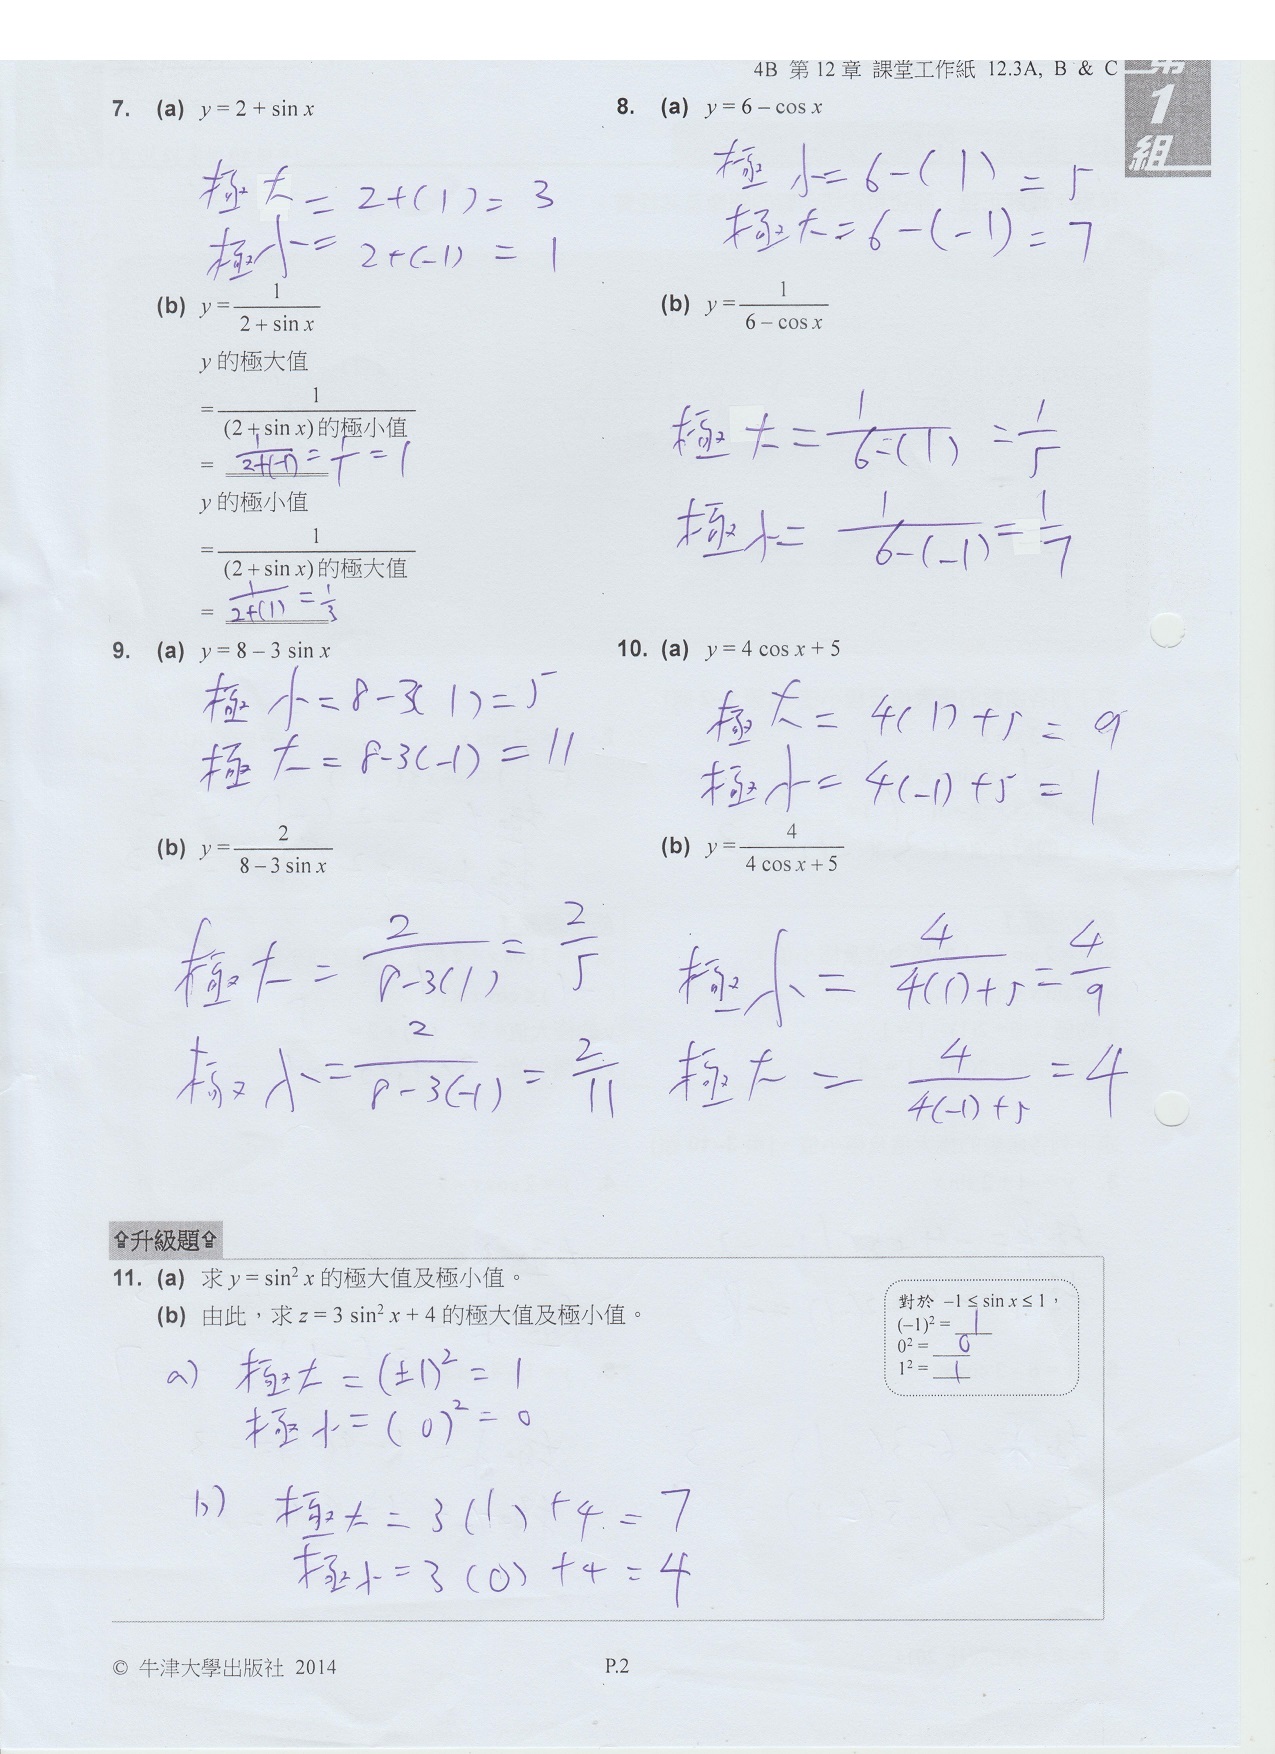 4B 第 12 章 課堂工作紙 12.3A, B & C
第
1
組
7. (a) y = 2 + sin x
極大 = 2+(1) = 3
極小 = 2+(-1) = 1
(b) y = 1/(2 + sin x)
y 的極大值
= 1/((2 + sin x) 的極小值)
= 1/(2+(-1)) = 1/1 = 1
y 的極小值
= 1/((2 + sin x) 的極大值)
= 1/(2+(1)) = 1/3
8. (a) y = 6 – cos x
極小 = 6-(1) = 5
極大 = 6-(-1) = 7
(b) y = 1/(6 – cos x)
極大 = 1/(6-(1)) = 1/5
極小 = 1/(6-(-1)) = 1/7
9. (a) y = 8 – 3 sin x
極小 = 8-3(1) = 5
極大 = 8-3(-1) = 11
(b) y = 2/(8 – 3 sin x)
極大 = 2/(8-3(1)) = 2/5
極小 = 2/(8-3(-1)) = 2/11
10. (a) y = 4 cos x + 5
極大 = 4(1)+5 = 9
極小 = 4(-1)+5 = 1
(b) y = 4/(4 cos x + 5)
極小 = 4/(4(1)+5) = 4/9
極大 = 4/(4(-1)+5) = 4
⇧升級題⇧
11. (a) 求 y = sin² x 的極大值及極小值。
(b) 由此，求 z = 3 sin² x + 4 的極大值及極小值。
對於 –1 ≤ sin x ≤ 1，
(–1)² = 1
0² = 0
1² = 1
a) 極大 = (±1)² = 1
極小 = (0)² = 0
b) 極大 = 3(1)+4 = 7
極小 = 3(0)+4 = 4
© 牛津大學出版社 2014
P.2